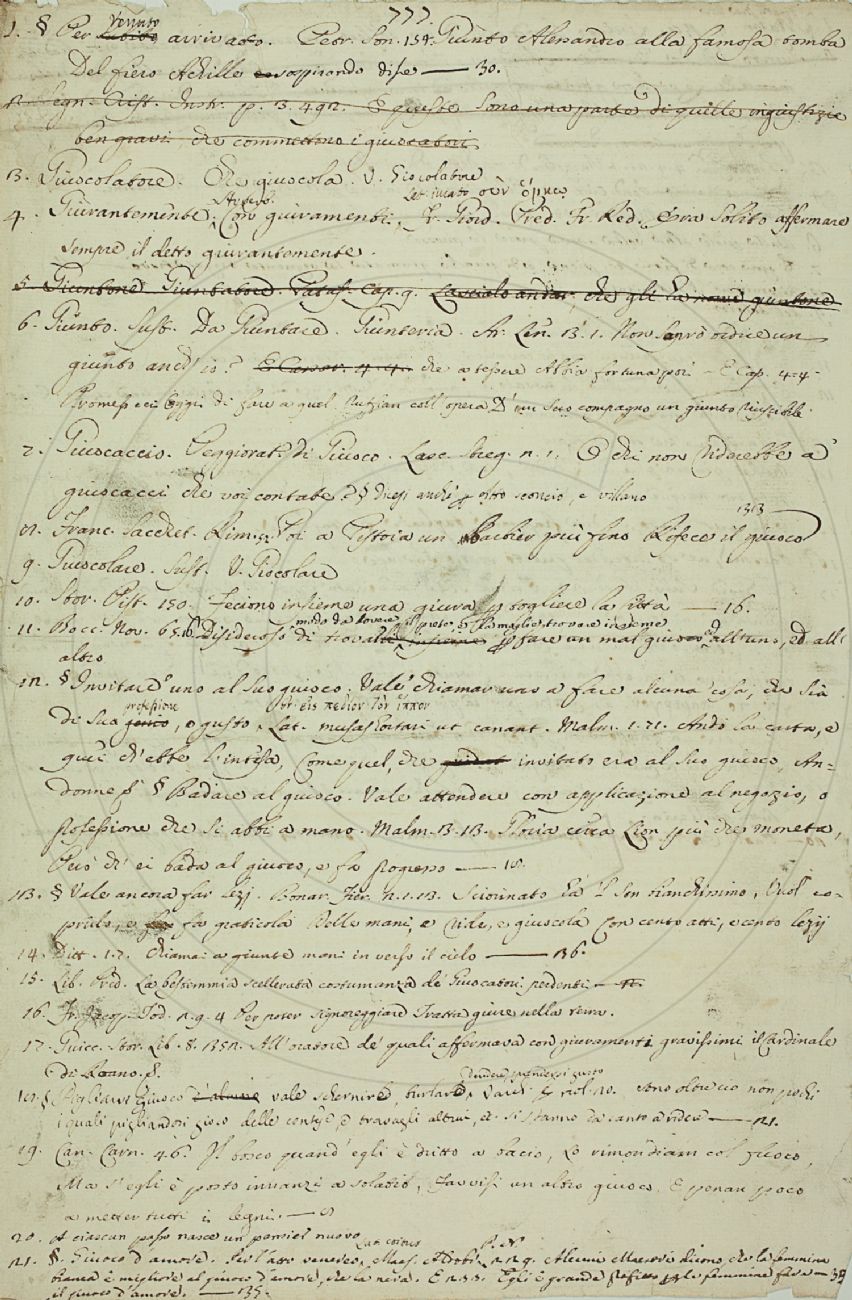 777.
1. § Per venuto arrivato. Petr. Son. 154. Giunto Alessandro alla famosa tomba
Del fiero Achille sospirando disse — 30.
Segn. Crist. Instr. p. 3. 492. sono una parte di quelle ingiustizie
ben gravi che commettono i giuocatori.
3. Giuocolatore. Che giuocola. V. Giocolatore
Avverb. Lat. jurato
4. Giurantemente. Con giuramenti. Fr. Giord. Pred. Era solito affermare
sempre il detto giurantemente.
5. Giuntone. Giuntatore. Pataff. Cap. 9. Lascialo andar, che gli ha giuntone
6. Giunto. Sust. Da Giuntare. Giunteria. Ar. Len. 3. 1. Non saprò ordire un
giunto anch' io? che a tessere abbia fortuna poi — E Cap. 4. 4.
Promessi oggi di fare a quel Ruffian coll' opera D' un suo compagno un giunto riuscibile.
7. Giuocaccio. Peggiorat. di Giuoco. Lasc. Streg. 2. 1. O chi non riderebbe a'
giuocacci che voi contate? § Dicesi anche altro sconcio, e villano
313
8. Franc. Sacchet. Rim. Poi a Pistoia un Barbier più fino Rifece il giuoco
9. Giuocolare. Sust. V. Giocolare
10. Stor. Pist. 150. Feciono insieme una giura p togliere la città — 16.
modo da dovere il prete, e la moglie trovare insieme
11. Bocc. Nov. 65. Disideroso di trovar p fare un mal giuoco all'uno, ed all'
altro
12. § Invitare uno al suo giuoco, Vale chiamar uno a fare alcuna cosa, che sia
professione
di suo genio, o gusto. Lat. musas hortari ut canant. Malm. 1. 71. Andò la carta, e
quei ch'ebbe l'intesa, Come quel, che invitato era al suo giuoco, An-
donne § Badare al giuoco. Vale attendere con applicazione al negozio, o
professione che si abbi a mano. Malm. 3. 13. Gloria cerca Lion più che moneta,
Però ch' ei bada al giuoco, e fa progresso — 18.
13. § Vale ancora far lezj. Bonar. Fier. 2. 1. 13. Scionnato ha l' Son stanchissimo, Vuol co-
prirlo, e fa graticola Delle mani, e ride, e giuocola Con cento atti, e cento lezij
14. Ditt. 1. 7. Chiamai a giunte mani in verso il cielo — 136.
15. Lib. Pred. La bestemmia scellerata costumanza de' Giuocatori perdenti — 12.
16. Fr. Jacop. Tod. 2. 9. 4 Per poter signoreggiare Tratta giure nella terra.
17. Guicc. Stor. Lib. 8. 352. All'oratore de' quali affermava con giuramenti gravissimi il Cardinale
di Roano.
18. § Pigliarsi giuoco vale schernire, burlare, Varch. sono oltre ciò non pochi
i quali pigliandosi gioco delle contese e travagli altrui, si stanno da canto a ridere — 21.
19. Can. Carn. 46. Il bosco quand' egli è dritto a bacio, Lo rimondiam col fuoco,
Ma s'egli è posto innanzi a soladio, Favvisi un altro giuoco, E penan poco
a metter tutti i legni. — 8
20. A ciascun passo nasce un pensier nuovo
Lat. coitus
21. §. Giuoco d'amore. Per l'atto venereo. Maes. Aldobr. P. N. 229. Alcuni Maestri dicono, che la femmina
bianca è migliore al giuoco d'amore, che la nera. E 233. Egli è grande le femmine fare — 38
il giuoco d'amore. — 135.